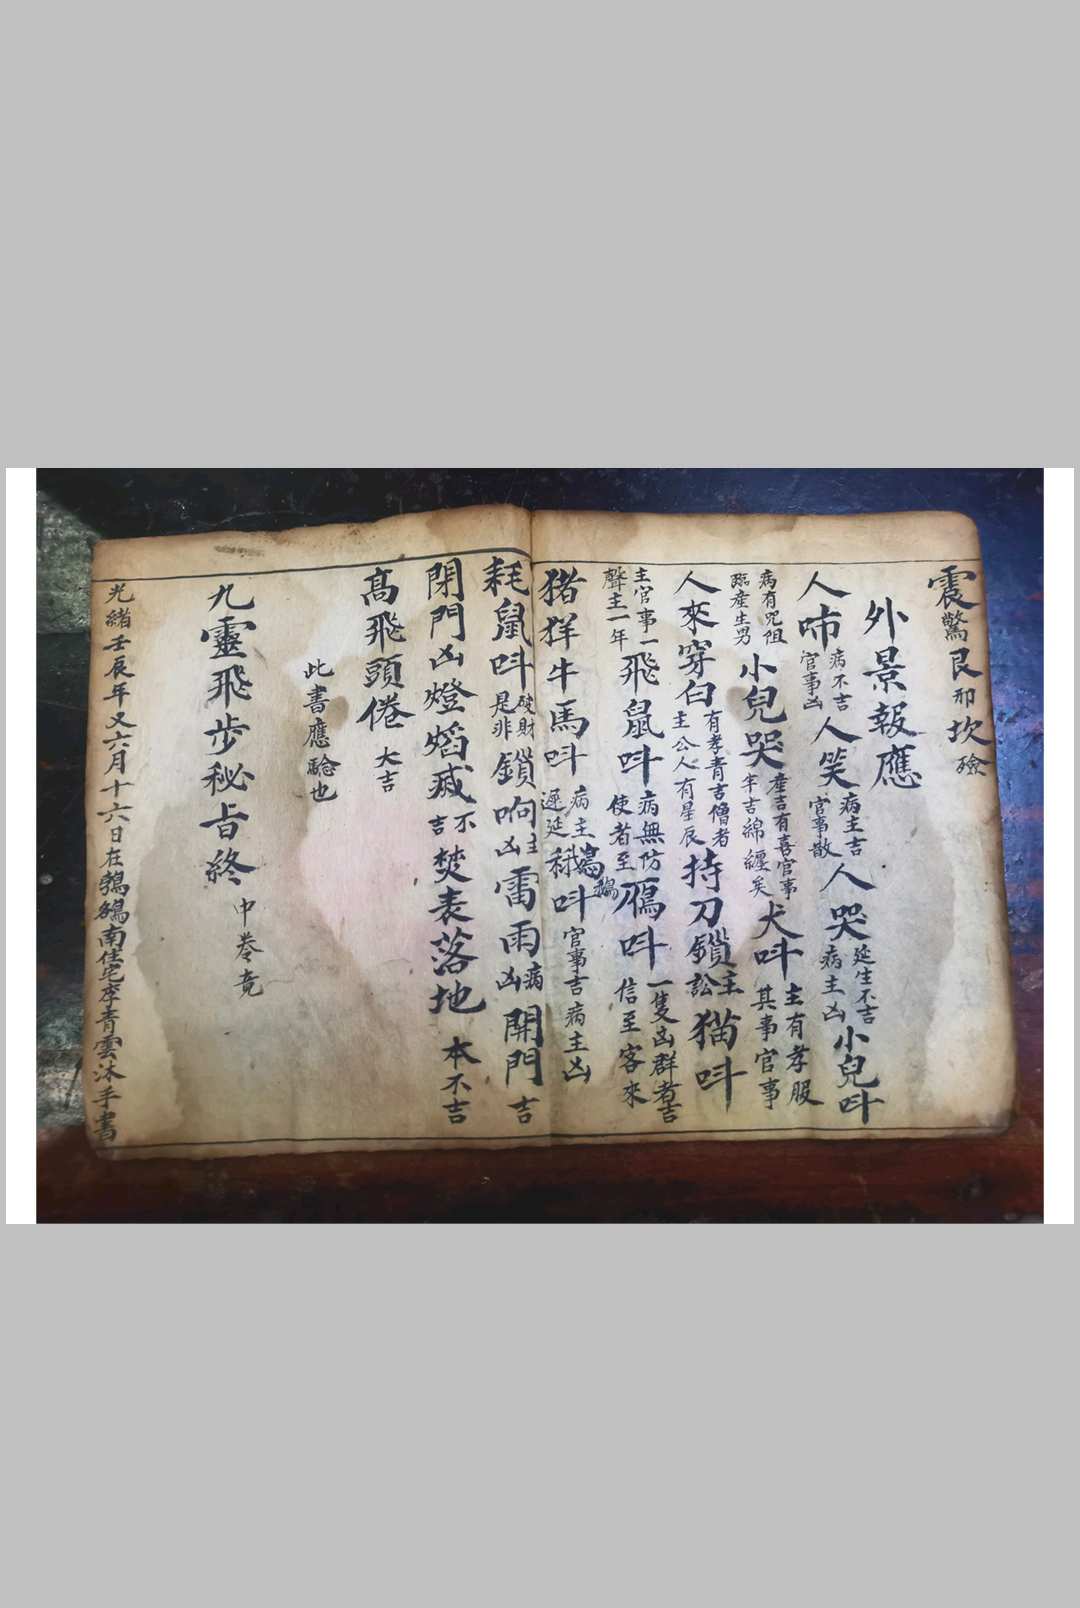 震驚艮卯坎礆
外景報應
人啼病不吉官事凶人笑病主吉官事散人哭延生不吉病主凶小兒呌
病有咒咀臨產生男小兒哭產吉有喜官事半吉綿纏矣犬呌主有孝服其事官事
人來穿白有孝青吉僧者主公人有星辰持刀鎖主訟猫呌
主官事一聲主一年飛鼠呌病無仿使者至鴈呌一隻凶群者吉信至客來
猪羊牛馬呌病主遲延鵝呌官事吉病主凶
耗鼠呌破財是非鎖响凶主雷雨凶病開門吉
閉門凶燈熖滅不吉焚表落地本不吉
高飛頭倦大吉
此書應驗也
九靈飛步秘旨終中卷竟
光緒壬辰年又六月十六日在鵓鴿南住宅李青雲沐手書